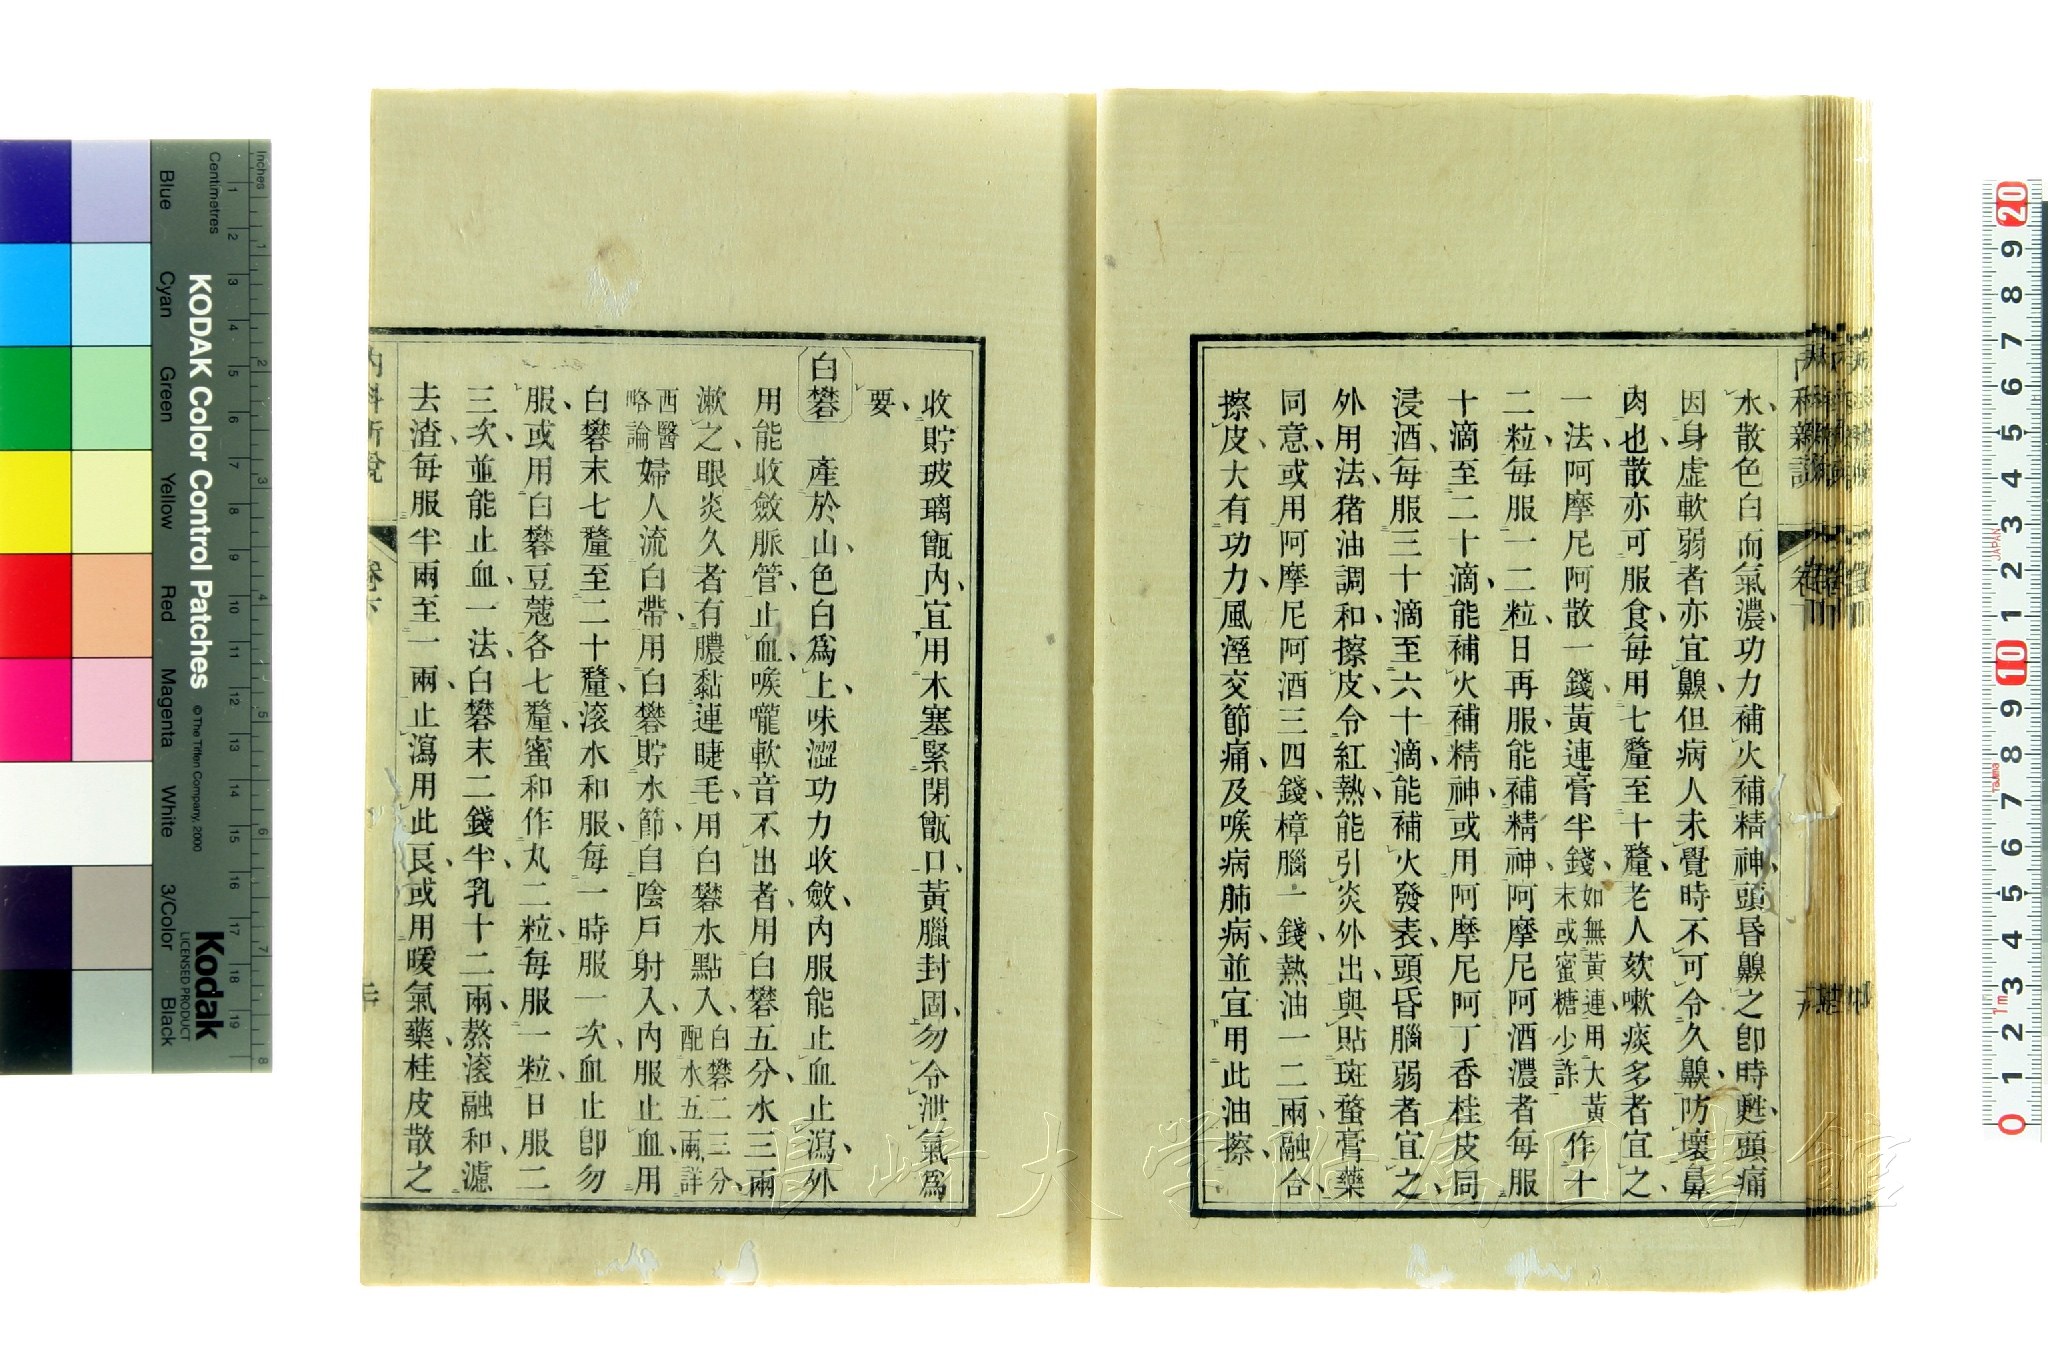 水散色白而氣濃功力補火補精神頭昏齅之卽時甦頭痛
因身虛軟弱者亦宜齅但病人未覺時不可令久齅防壞鼻
肉也散亦可服食每用七釐至十釐老人欬嗽痰多者宜之
一法阿摩尼阿散一錢黃連膏半錢如無黃連用大黃末或蜜糖少許作十
二粒每服一二粒日再服能補精神阿摩尼阿酒濃者每服
十滴至二十滴能補火補精神或用阿摩尼阿丁香桂皮同
浸酒每服三十滴至六十滴能補火發表頭昏腦弱者宜之
外用法猪油調和擦皮令紅熱能引炎外出與貼斑蝥膏藥
同意或用阿摩尼阿酒三四錢樟腦一錢熱油一二兩融合
擦皮大有功力風溼交節痛及喉病肺病並宜用此油擦
收貯玻璃甑內宜用木塞緊閉甑口黃臘封固勿令泄氣爲
要
白礬 產於山色白爲上味澀功力收斂內服能止血止瀉外
用能收斂脈管止血喉嚨軟音不出者用白礬五分水三兩
漱之眼炎久者有膿黏連睫毛用白礬水點入白礬二三分配水五兩詳
西醫略論婦人流白帶用白礬貯水節自陰戶射入內服止血用
白礬末七釐至二十釐滚水和服每一時服一次血止卽勿
服或用白礬豆蔻各七釐蜜和作丸二粒每服一粒日服二
三次並能止血一法白礬末二錢半乳十二兩熬滚融和濾
去渣每服半兩至一兩止瀉用此良或用暖氣藥桂皮散之
內科新說
卷下
長崎大学附属図書館
KODAK Color Control Patches
© The Tiffen Company, 2000
Kodak
LICENSED PRODUCT
Inches
Centimetres
Blue
Cyan
Green
Yellow
Red
Magenta
White
3/Color
Black
1 2 3 4 5 6 7 8 9 10 11 12 13 14 15 16 17 18 19
1 2 3 4 5 6 7 8
20 9 8 7 6 5 4 3 2 1 10 9 8 7 6 5 4 3 2 1 0
JAPAN